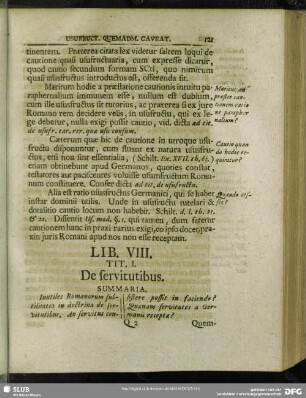 USUFRUCT. QUEMADM. CAVEAT. 121
tinentem. Praeterea citata lex videtur saltem loqui de
cautione quasi usufructuaria, cum expresse dicatur,
quod cautio secundum formam SCti, quo nimirum
quasi ususfructus introductus est, offerenda sit.
Maritum hodie a praestatione cautionis intuitu pa-
raphernalium immunem esse, nullum est dubium,
cum ille ususfructus sit tutorius, ac praeterea si ex jure
Romano rem decidere velis, in usufructu, qui ex le-
ge debetur, nulla exigi possit cautio, vid. dicta ad tit.
de usufr. ear. rer. quae usu consum.
Maritus an
praestet cau-
tionem ratio
ne parapher
nalium?
Caeterum quae hic de cautione in utroque usu-
fructu disponuntur, cum fluant ex natura ususfru-
ctus, etsi non sint essentialia, (Schilt. Ex. XVII. th. 63.)
etiam obtinebunt apud Germanos, quoties constat,
testatores aut paciscentes voluisse usumfructum Roma-
num constituere. Confer dicta ad tit. de usufructu.
Cautio quan
do hodie re-
quiratur?
Alia est ratio ususfructus Germanici, qui se habet
instar dominii utilis. Unde in usufructu tutelari &
dotalitio cautio locum non habebit. Schilt. d. l. th. 21.
& 22. Dissentit Us. mod. §. 1. qui tamen, dum fatetur
cautionem hanc in praxi raritas exigi, eo ipso docet, pra-
xin juris Romani apud nos non esse receptam.
LIB. VIII.
TIT. I.
De servitutibus.
SUMMARIA.
Inutiles Romanorum sub-
tilitates in doctrina de ser-
vitutibus. An servitus con-
sistere possit in faciendo?
Quaenam servitutes a Ger-
manis receptae?
Q 2 Quem-
SLUB
DFG